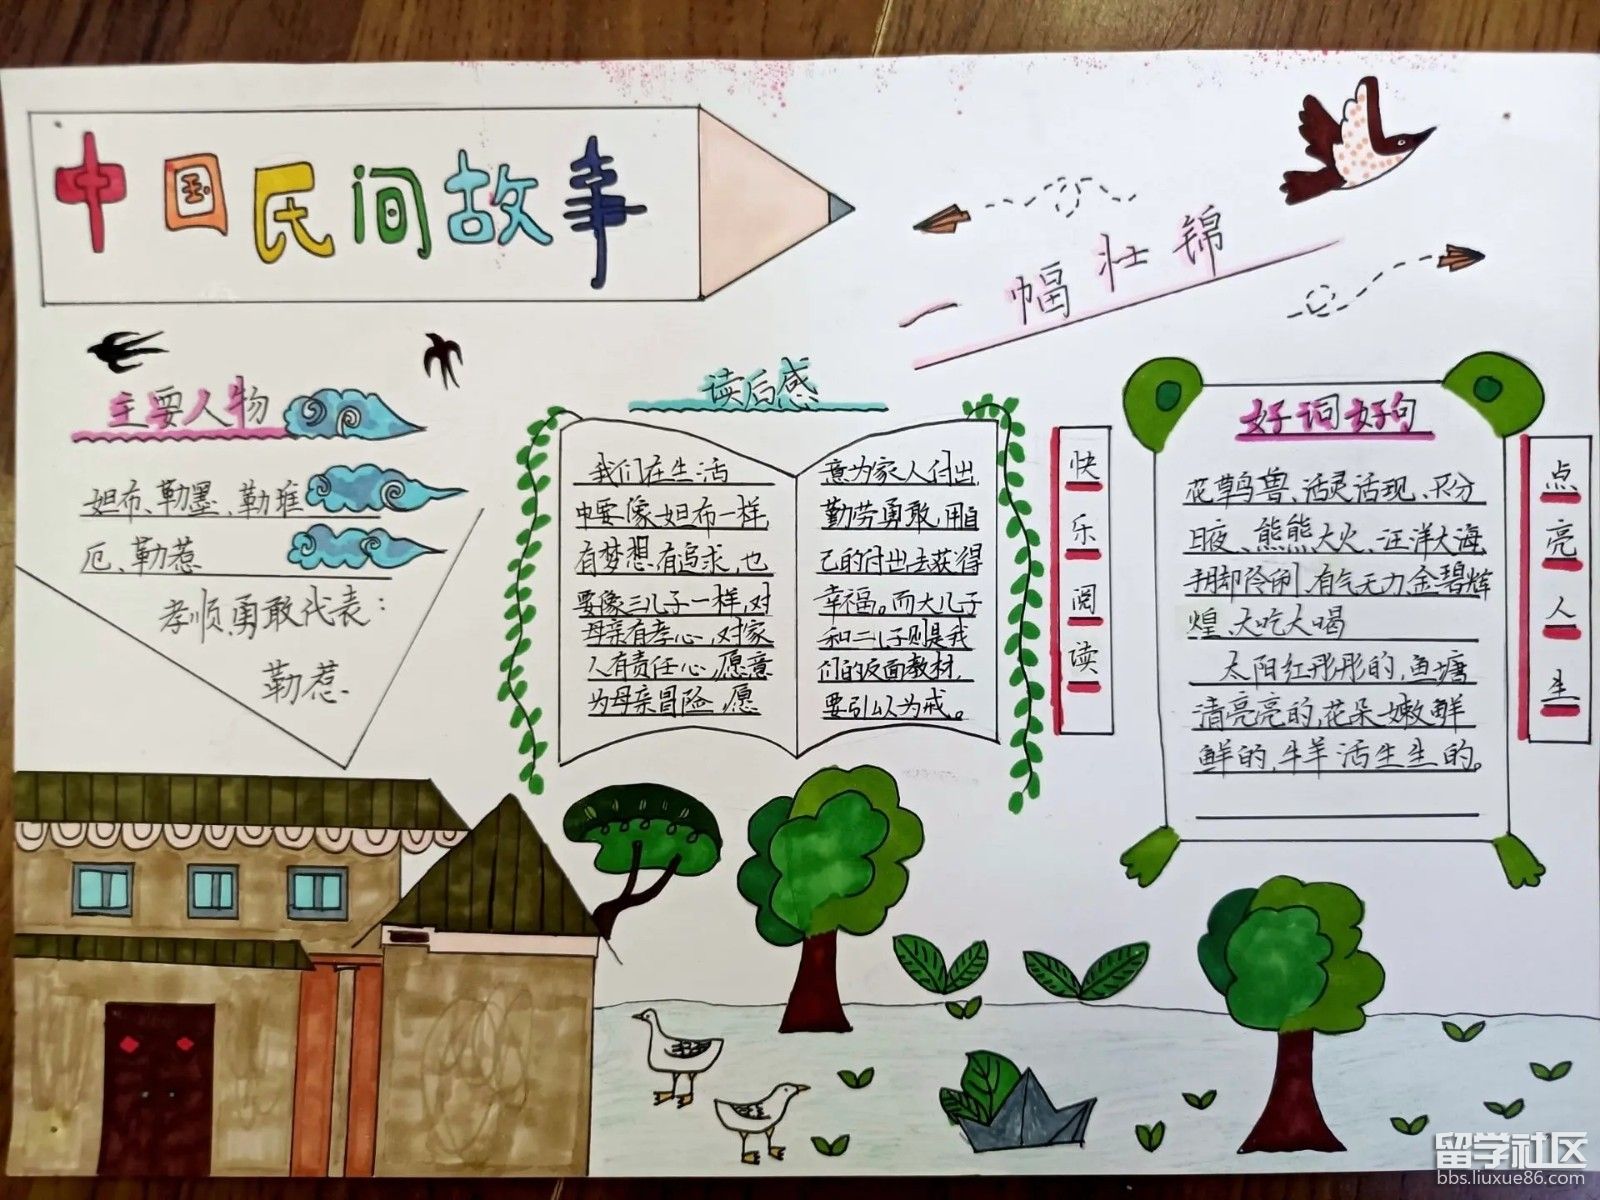 中国民间故事
一幅壮锦
主要人物
妲布、勒墨、勒堆
厄、勒惹
孝顺勇敢代表：
勒惹
读后感
我们在生活
中要像妲布一样，
有梦想有追求，也
要像三儿子一样，对
母亲有孝心，对家
人有责任心，愿意
为母亲冒险，愿
意为家人付出，
勤劳勇敢，用自
己的付出去获得
幸福。而大儿子
和二儿子则是我
们的反面教材，
要引以为戒。
快乐阅读
好词好句
花草鸟兽、活灵活现、不分
日夜、熊熊大火、汪洋大海
手脚伶俐、有气无力、金碧辉
煌、大吃大喝
太阳红彤彤的，鱼塘
清亮亮的，花朵嫩鲜
鲜的，牛羊活生生的。
点亮人生
留学社区
bbs.liuxue86.com